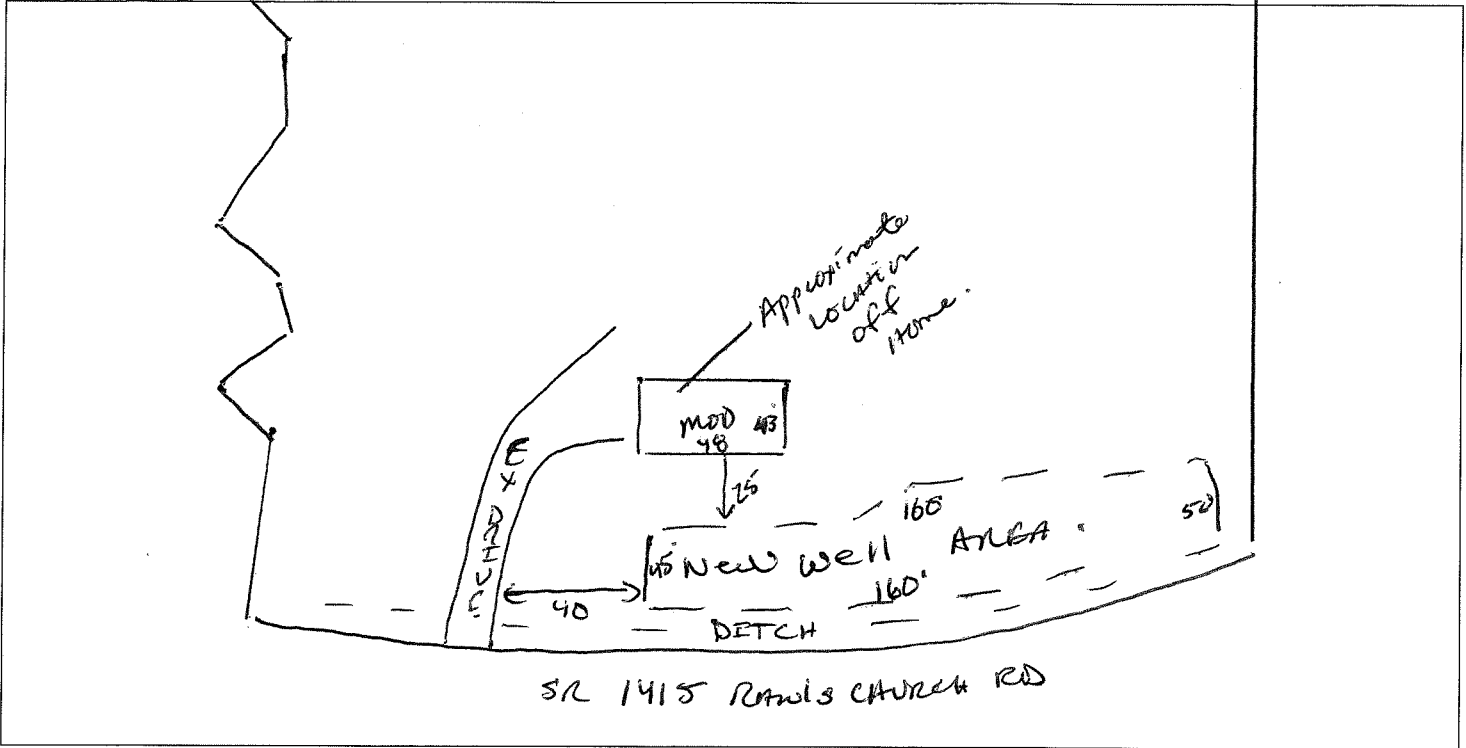 Approximate
Location
off
Home.
MOD 43
48
25
EX DRIVE
160
50
45 New Well AREA.
160'
40
DITCH
SR 1415 RAWLS CHURCH RD